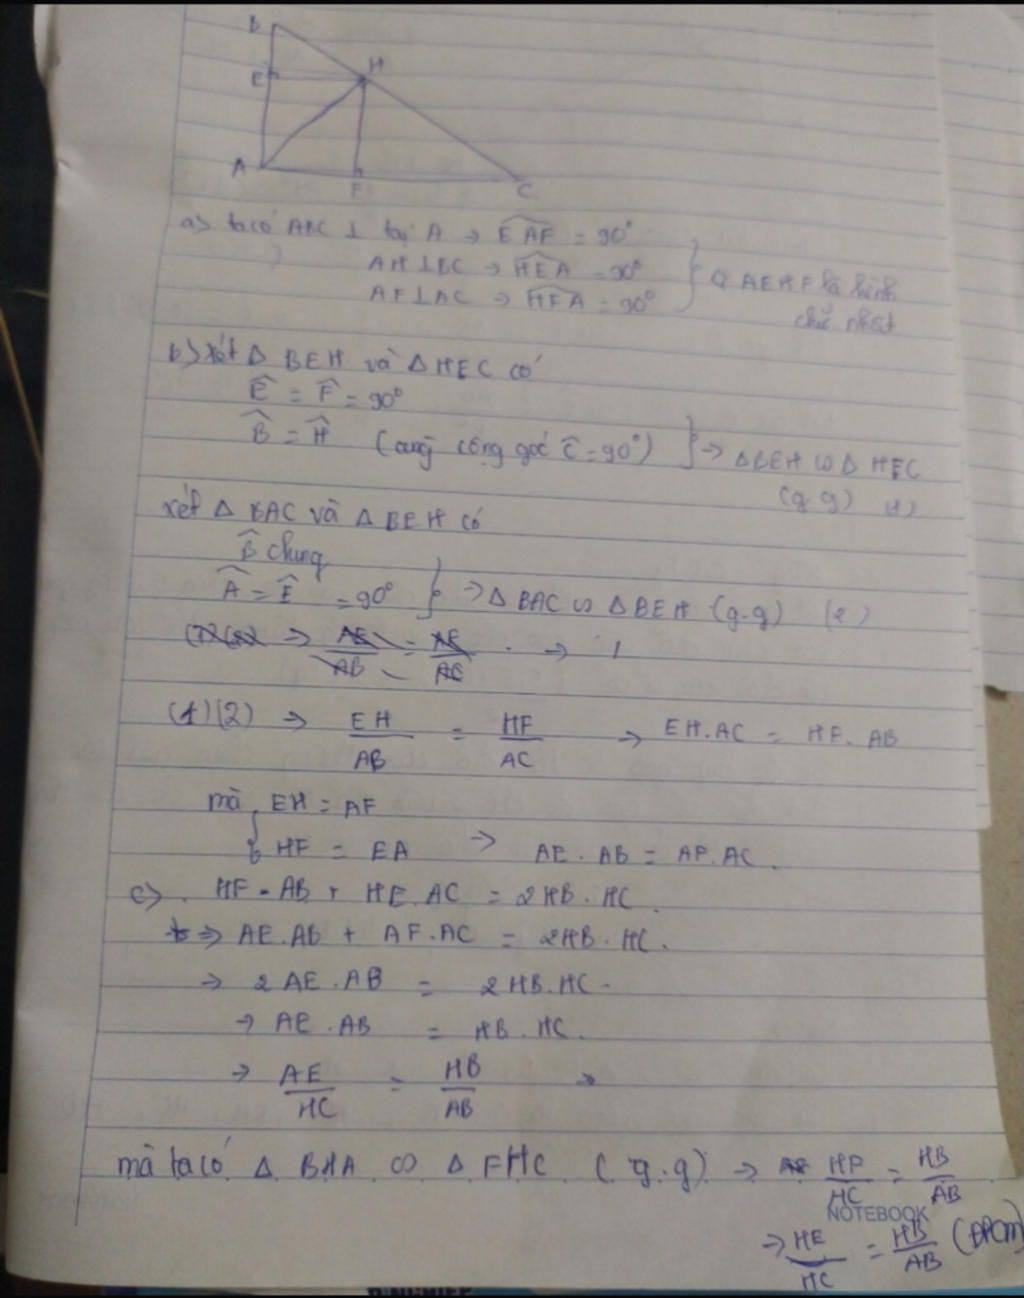 B
E
H
A
F
C
a) ta có ABC ⊥ tại A → EAF = 90°
AH ⊥ BC → HEA = 90°
AF ⊥ AC → HFA = 90°
} ◊ AEHF là hình
chữ nhật
b) xét Δ BEH và Δ HEC có
Ê = F̂ = 90°
B̂ = Ĥ (cùng cộng góc Ĉ = 90°) } → ΔBEH ∽ Δ HFC
(g g) (1)
xét Δ BAC và Δ BEH có
B̂ chung
Â = Ê = 90° } → Δ BAC ∽ Δ BEH (g.g) (2)
(1)(2) → AE/AB = AF/AC →
(1)(2) → EH/AB = HF/AC → EH.AC = HF.AB
mà { EH = AF
HF = EA → AE.AB = AF.AC.
c). HF.AB + HE.AC = 2HB.HC.
⇒ AE.AB + AF.AC = 2HB.HC.
→ 2AE.AB = 2HB.HC.
→ AE.AB = HB.HC.
→ AE/HC = HB/AB →
mà ta có Δ BHA ∽ Δ FHC (g.g) → HF/HC = HB/AB
NOTEBOOK
→ HE/HC = HB/AB (ĐPCM)